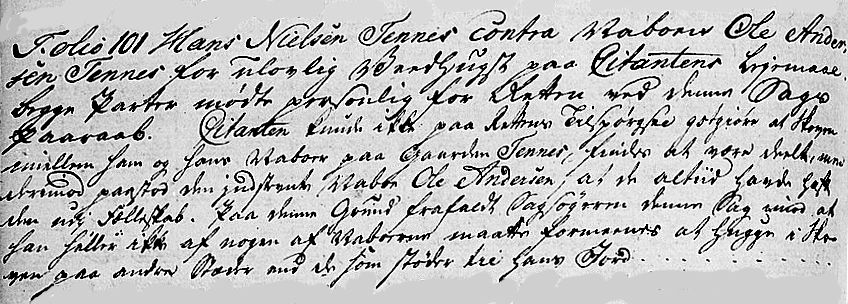 Folio 101 Hans Nielsen Tennes Contra Naboen Ole Ander-
sen Tennes for Ulovlig Weedhugst paa Citantens Leyemaal.
begge Parter mødte personlig for Retten ved denne Sags
Paaraab. Citanten kunde ikke paa Rettens Tilspørgsel gotgiøre at Skoven
imellem ham og hans Naboer paa Gaarden Tennes, findes at være deelt, men
derimod paastod den indstevnte Naboe Ole Andersen at de altiid havde haft
den udj Fælleskab. Paa denne Grund frafaldt Sagsøgeren denne Sag imod at
han heller ikke af nogen af Naboerne maatte formeenes at hugge i Sko-
ven paa andre Stæder end de som støder til hans Jord